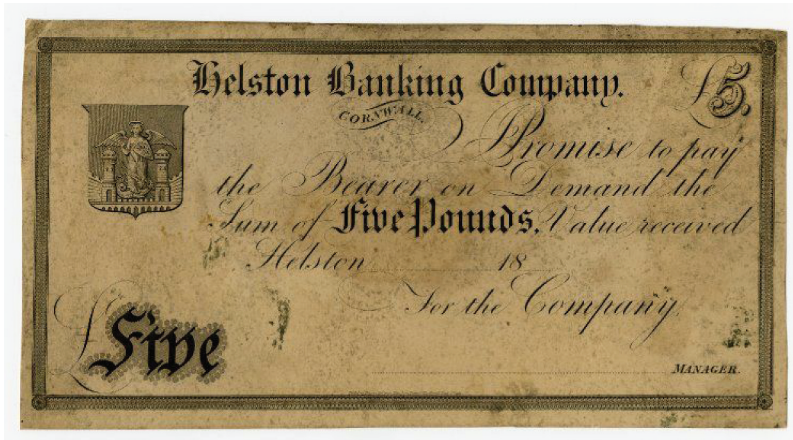 Helston Banking Company.
£5.
CORNWALL
I Promise to pay
the Bearer on Demand the
Sum of Five Pounds, Value received
Helston 18
For the Company
£Five
MANAGER.